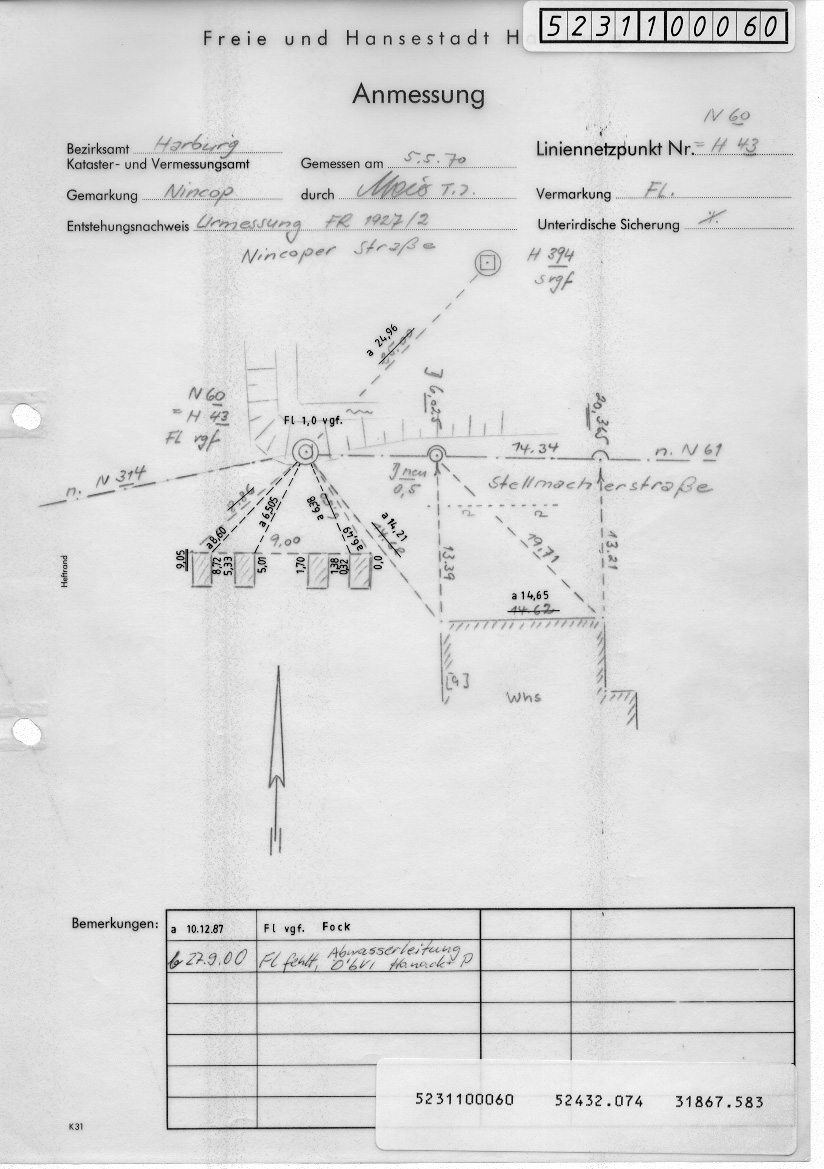 5231100060
Freie und Hansestadt H
Anmessung
N 60
Bezirksamt Harburg
Kataster- und Vermessungsamt
Gemessen am 5.5.70
Liniennetzpunkt Nr. = H 43
Gemarkung Nincop
durch T.J.
Vermarkung FL.
Entstehungsnachweis Urmessung FR 1927/2
Unterirdische Sicherung
Nincoper Straße
H 394
srgf
a 24,96
N 60
= H 43
FL rgf
Fl 1,0 vgf.
6,025
20,365
14.34
n. N 61
n. N 314
neu
0,5
Stellmacherstraße
a 8,60
a 6,505
a 6,58
a 6,49
a 14,21
9,00
9,05
8,72
5,33
5,01
1,70
1,38
0,32
0,0
13.39
19,71
13.21
a 14,65
14.62
[9]
Whs
Heftrand
Bemerkungen:
a 10.12.87 Fl vgf. Fock
b 27.9.00 Fl fehlt, Abwasserleitung
ÖbVI Hanack P
5231100060 52432.074 31867.583
K31